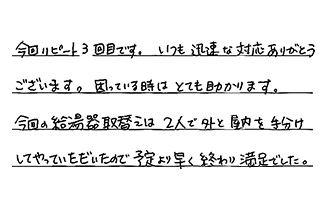 今回リピート3回目です。いつも迅速な対応ありがとう
ございます。困っている時はとても助かります。
今回の給湯器取替えは2人で外と屋内を手分け
してやっていただいたので予定より早く終わり満足でした。